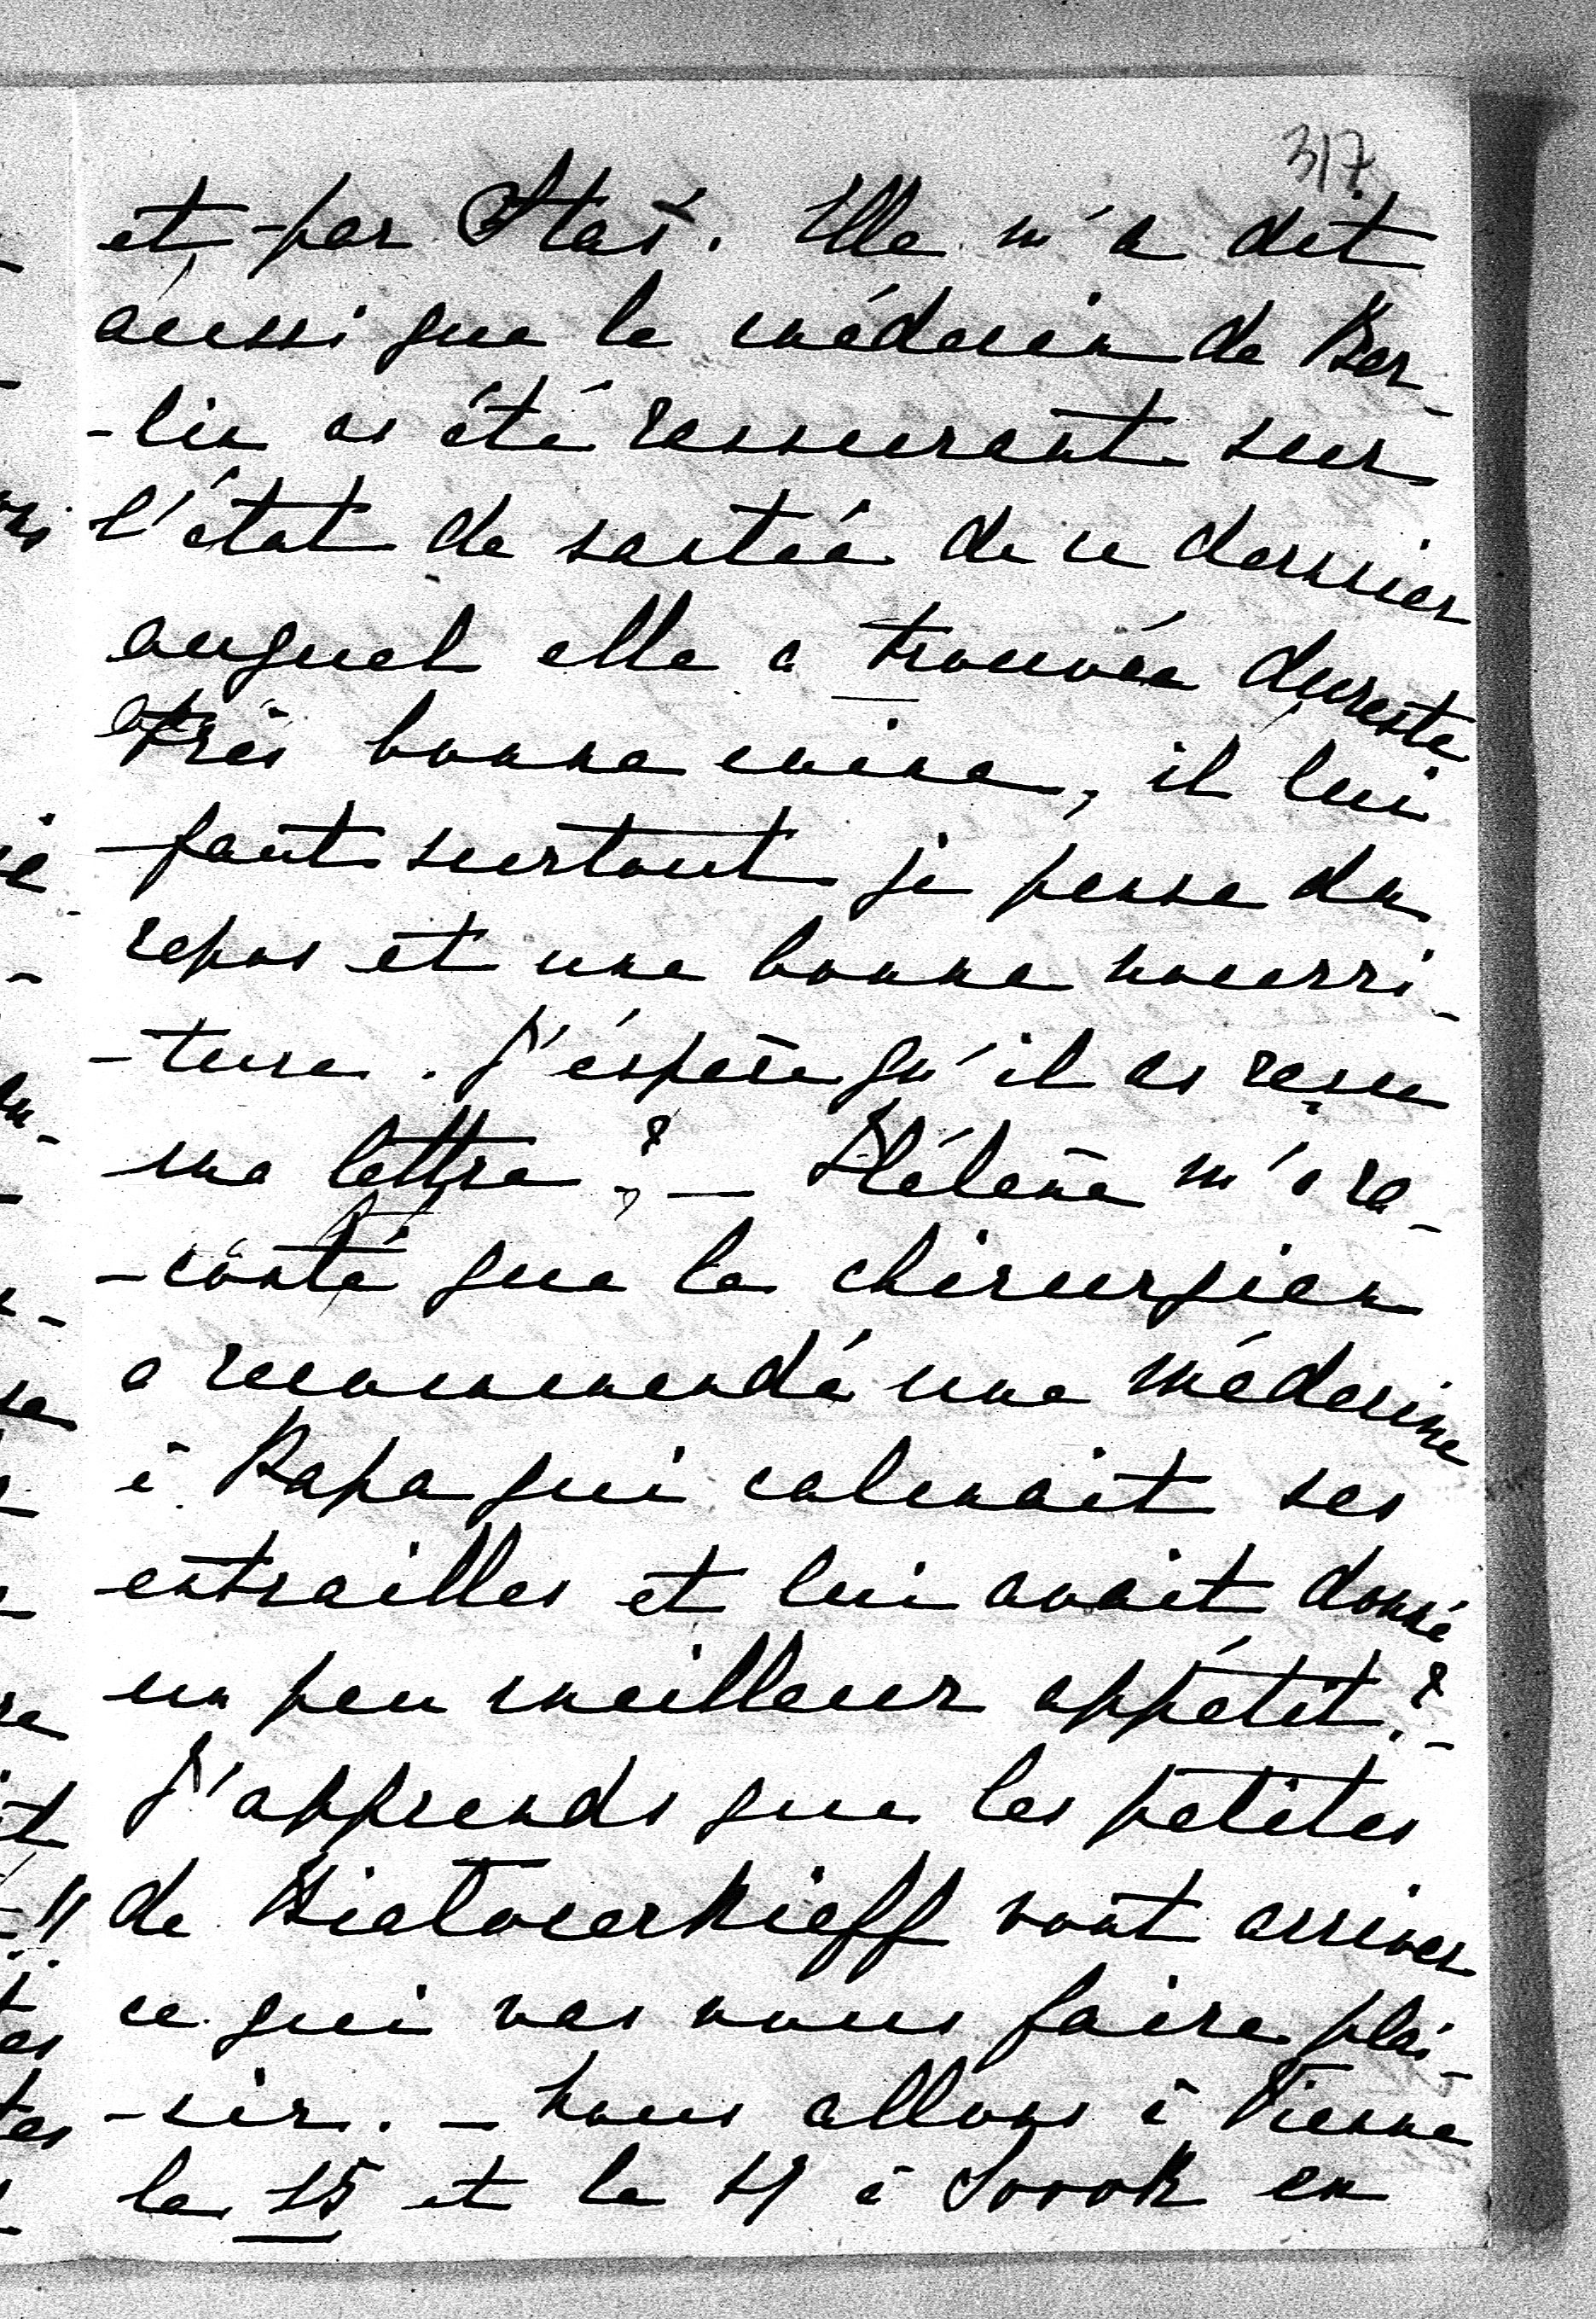 317
et par Staś. Elle m'a dit
aussi que le médecin de Ber-
-lin as été rassurant sur
l'état de santée de ce dernier
auquel elle a trouvée dureste
très bonne mine, il lui
faut surtout je pense du
repos et une bonne nourri-
-ture. J'éspère qu'il as reçu
ma lettre? — Hélène m'a ra-
-conté que le chirurgien
a recommendé une médecine
à Papa qui calmait ses
entrailles et lui avait donné
un peu meilleur appétit? -
J'apprends que les petites
de Białocerkieff vont arriver
ce qui vas nous faire plai-
-sir. — Nous allons à Vienne
le 15 et le à en